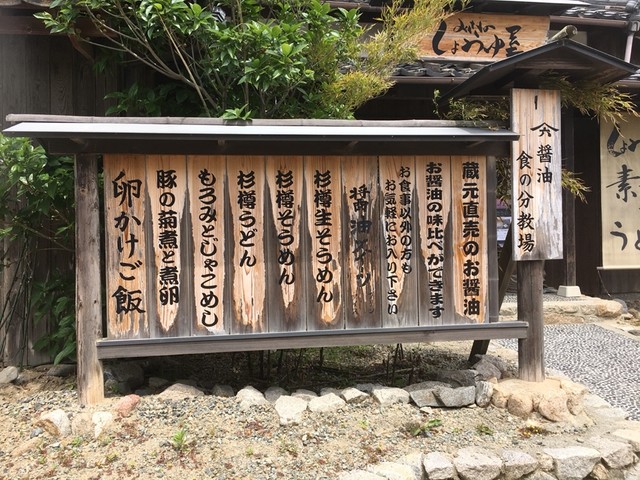 しょうゆ屋
醤油
食の分教場
蔵元直売のお醤油
お醤油の味比べができます
お食事以外の方も
お気軽にお入り下さい
醤油
杉樽生そうめん
杉樽そうめん
杉樽うどん
もろみとじゃこめし
豚の菊煮と煮卵
卵かけご飯
素